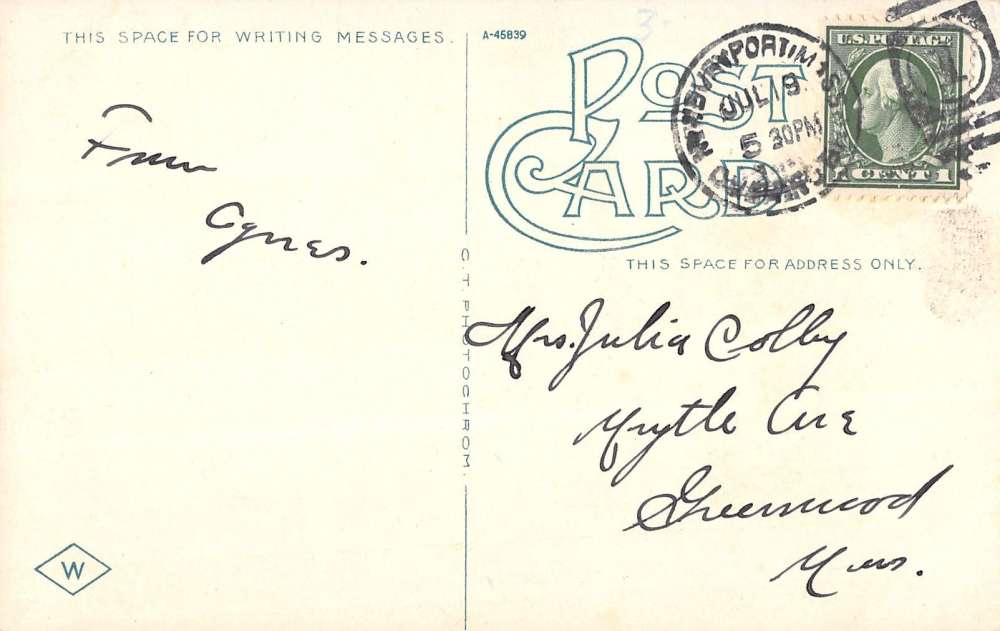 THIS SPACE FOR WRITING MESSAGES.
A-45839
POST
CARD
JUL 19
5 30 PM
U.S. POSTAGE
1 CENT 1
From
Agnes.
C.T. PHOTOCHROM.
THIS SPACE FOR ADDRESS ONLY.
Mrs. Julia Colby
Myrtle Ave
Greenwood
Mass.
W